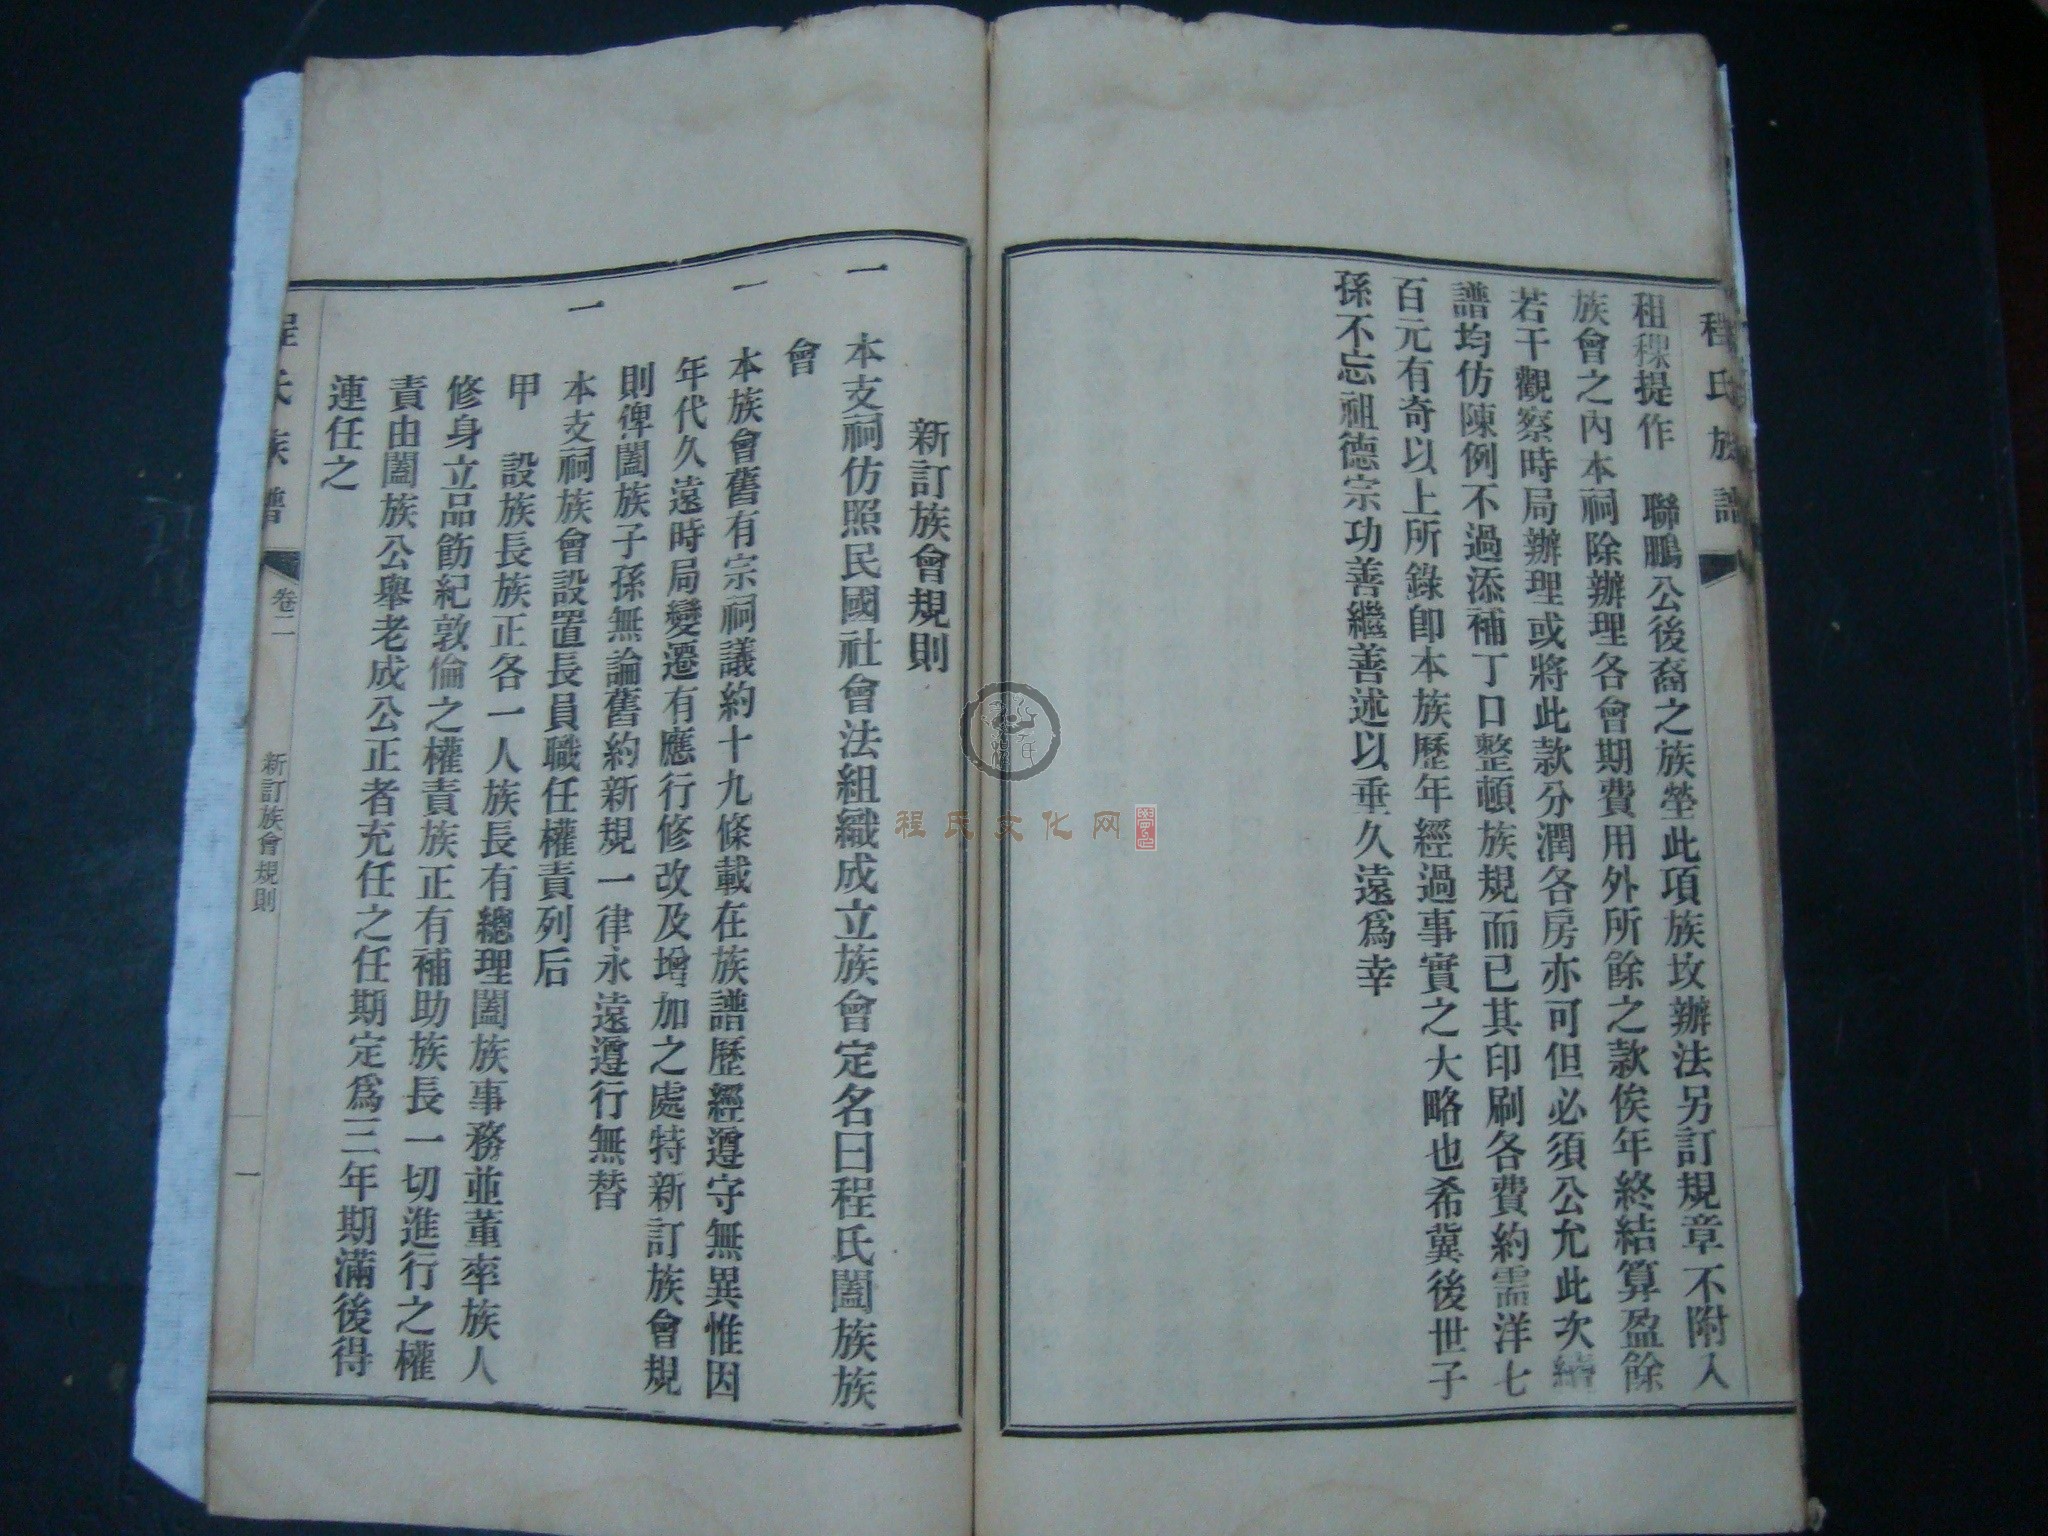 程氏族譜
租稞提作　聯鵬公後裔之族塋此項族坟辦法另訂規章不附入
族會之內本祠除辦理各會期費用外所餘之款俟年終結算盈餘
若干觀察時局辦理或將此款分潤各房亦可但必須公允此次續
譜均仿陳例不過添補丁口整頓族規而已其印刷各費約需洋七
百元有奇以上所錄卽本族歷年經過事實之大略也希冀後世子
孫不忘祖德宗功善繼善述以垂久遠爲幸
新訂族會規則
一　本支祠仿照民國社會法組織成立族會定名曰程氏闔族族
會
一　本族會舊有宗祠議約十九條載在族譜歷經遵守無異惟因
年代久遠時局變遷有應行修改及增加之處特新訂族會規
則俾闔族子孫無論舊約新規一律永遠遵行無替
一　本支祠族會設置長員職任權責列后
甲　設族長族正各一人族長有總理闔族事務並董率族人
修身立品飭紀敦倫之權責族正有補助族長一切進行之權
責由闔族公舉老成公正者充任之任期定爲三年期滿後得
連任之
程氏族譜　卷二　新訂族會規則　一
程氏文化网